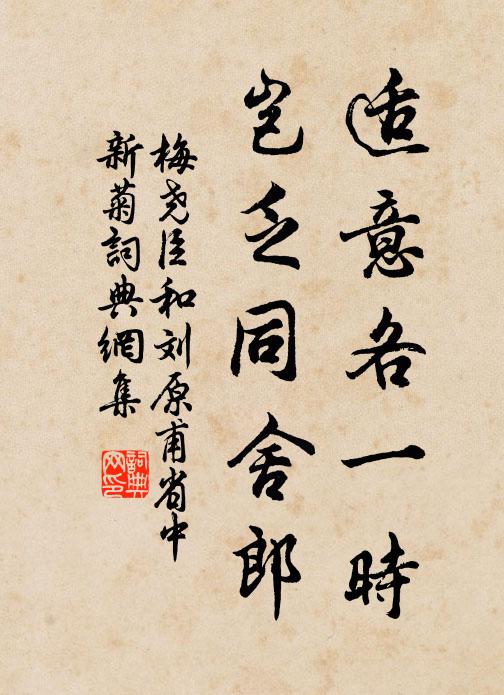 适意各一時
岂乏同舍郎
梅尧臣和刘原甫省中
新菊詞典網集
詞典
网印